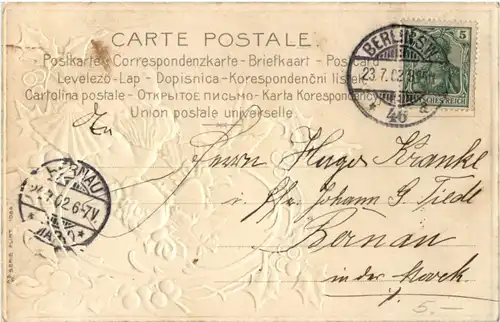 CARTE POSTALE.
Postkarte - Correspondenzkarte - Briefkaart - Postcard
Levelező-Lap - Dopisnica - Korespondenční lístek
Cartolina postale - Открытое письмо - Karta Korespondency
Union postale universelle.
BERLIN SW
23.7.02
46
5
DEUTSCHES REICH
An
Herrn Hugo Kranke
Johann G. Tiedt
BERNAU
6-7V.
Bernau
in der Mark
5.-